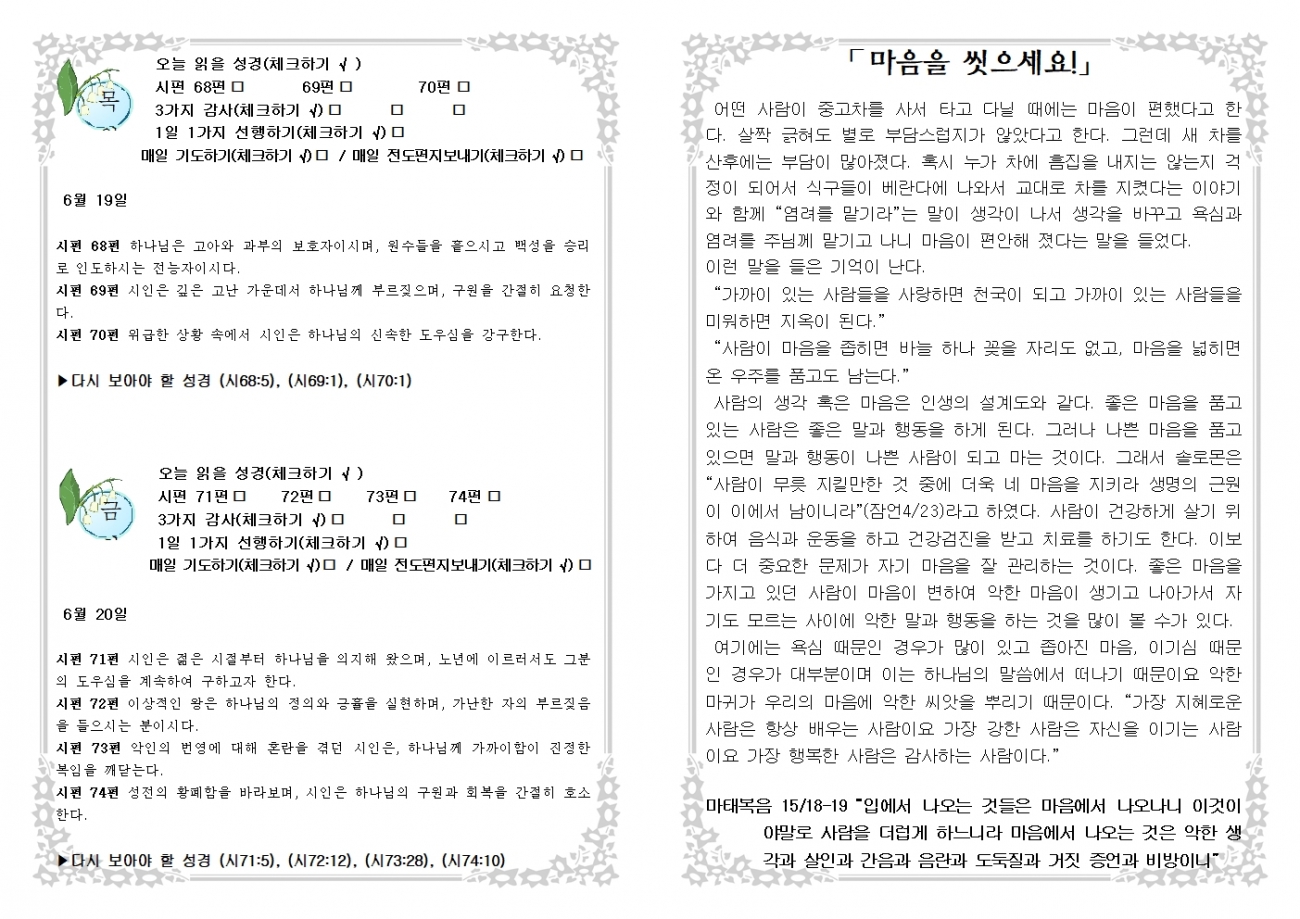 목
오늘 읽을 성경(체크하기 √ )
시편 68편 □ 69편 □ 70편 □
3가지 감사(체크하기 √) □ □ □
1일 1가지 선행하기(체크하기 √) □
매일 기도하기(체크하기 √) □ / 매일 전도편지보내기(체크하기 √) □
6월 19일
시편 68편 하나님은 고아와 과부의 보호자이시며, 원수들을 흩으시고 백성을 승리
로 인도하시는 전능자이시다.
시편 69편 시인은 깊은 고난 가운데서 하나님께 부르짖으며, 구원을 간절히 요청한
다.
시편 70편 위급한 상황 속에서 시인은 하나님의 신속한 도우심을 강구한다.
▶다시 보아야 할 성경 (시68:5), (시69:1), (시70:1)
금
오늘 읽을 성경(체크하기 √ )
시편 71편 □ 72편 □ 73편 □ 74편 □
3가지 감사(체크하기 √) □ □ □
1일 1가지 선행하기(체크하기 √) □
매일 기도하기(체크하기 √) □ / 매일 전도편지보내기(체크하기 √) □
6월 20일
시편 71편 시인은 젊은 시절부터 하나님을 의지해 왔으며, 노년에 이르러서도 그분
의 도우심을 계속하여 구하고자 한다.
시편 72편 이상적인 왕은 하나님의 정의와 긍휼을 실현하며, 가난한 자의 부르짖음
을 들으시는 분이시다.
시편 73편 악인의 번영에 대해 혼란을 겪던 시인은, 하나님께 가까이함이 진정한
복임을 깨닫는다.
시편 74편 성전의 황폐함을 바라보며, 시인은 하나님의 구원과 회복을 간절히 호소
한다.
▶다시 보아야 할 성경 (시71:5), (시72:12), (시73:28), (시74:10)
「마음을 씻으세요!」
어떤 사람이 중고차를 사서 타고 다닐 때에는 마음이 편했다고 한
다. 살짝 긁혀도 별로 부담스럽지가 않았다고 한다. 그런데 새 차를
산후에는 부담이 많아졌다. 혹시 누가 차에 흠집을 내지는 않는지 걱
정이 되어서 식구들이 베란다에 나와서 교대로 차를 지켰다는 이야기
와 함께 “염려를 맡기라”는 말이 생각이 나서 생각을 바꾸고 욕심과
염려를 주님께 맡기고 나니 마음이 편안해 졌다는 말을 들었다.
이런 말을 들은 기억이 난다.
“가까이 있는 사람들을 사랑하면 천국이 되고 가까이 있는 사람들을
미워하면 지옥이 된다.”
“사람이 마음을 좁히면 바늘 하나 꽂을 자리도 없고, 마음을 넓히면
온 우주를 품고도 남는다.”
사람의 생각 혹은 마음은 인생의 설계도와 같다. 좋은 마음을 품고
있는 사람은 좋은 말과 행동을 하게 된다. 그러나 나쁜 마음을 품고
있으면 말과 행동이 나쁜 사람이 되고 마는 것이다. 그래서 솔로몬은
“사람이 무릇 지킬만한 것 중에 더욱 네 마음을 지키라 생명의 근원
이 이에서 남이니라”(잠언4/23)라고 하였다. 사람이 건강하게 살기 위
하여 음식과 운동을 하고 건강검진을 받고 치료를 하기도 한다. 이보
다 더 중요한 문제가 자기 마음을 잘 관리하는 것이다. 좋은 마음을
가지고 있던 사람이 마음이 변하여 악한 마음이 생기고 나아가서 자
기도 모르는 사이에 악한 말과 행동을 하는 것을 많이 볼 수가 있다.
여기에는 욕심 때문인 경우가 많이 있고 좁아진 마음, 이기심 때문
인 경우가 대부분이며 이는 하나님의 말씀에서 떠나기 때문이요 악한
마귀가 우리의 마음에 악한 씨앗을 뿌리기 때문이다. “가장 지혜로운
사람은 항상 배우는 사람이요 가장 강한 사람은 자신을 이기는 사람
이요 가장 행복한 사람은 감사하는 사람이다.”
마태복음 15/18-19 “입에서 나오는 것들은 마음에서 나오나니 이것이
야말로 사람을 더럽게 하느니라 마음에서 나오는 것은 악한 생
각과 살인과 간음과 음란과 도둑질과 거짓 증언과 비방이니”